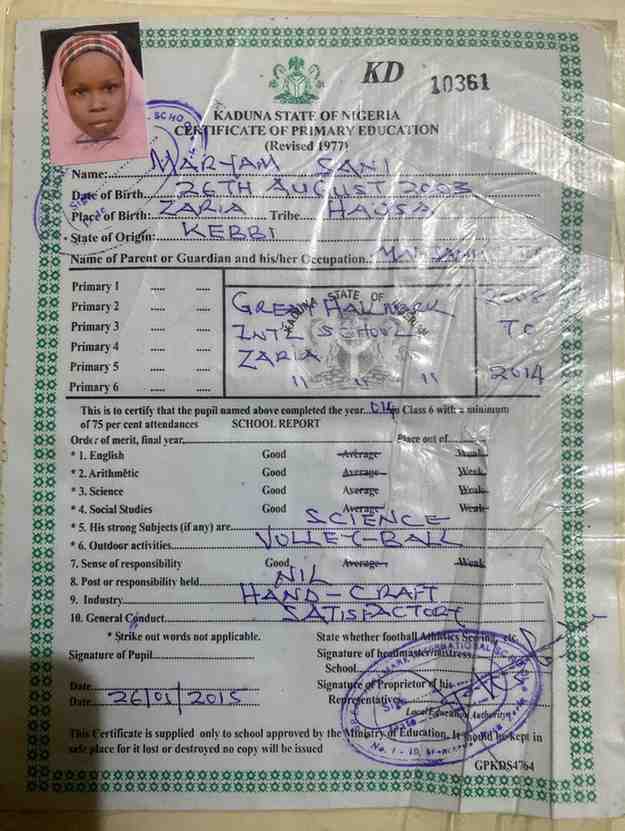 KD 10361
KADUNA STATE OF NIGERIA
CERTIFICATE OF PRIMARY EDUCATION
(Revised 1977)
Name: MARYAM SANI
Date of Birth 26TH AUGUST 2003
Place of Birth: ZARIA Tribe HAUSA
State of Origin: KEBBI
Name of Parent or Guardian and his/her Occupation.:
Primary 1 ..... .....
Primary 2 ..... ..... GREAT HALLMARK 2008
Primary 3 ..... ..... INTL SCHOOL TO
Primary 4 ..... ..... ZARIA
Primary 5 ..... ..... " " " 2014
Primary 6 ..... .....
KADUNA STATE OF
This is to certify that the pupil named above completed the year... 014 in Class 6 with a minimum
of 75 per cent attendances SCHOOL REPORT
Order of merit, final year, Place out of
* 1. English Good Average Weak
* 2. Arithmetic Good Average Week
* 3. Science Good Average Weak
* 4. Social Studies Good Average Weak
* 5. His strong Subjects (if any) are SCIENCE
* 6. Outdoor activities VOLLEY-BALL
7. Sense of responsibility Good Average Weak
8. Post or responsibility held NIL
9. Industry HAND-CRAFT
10. General Conduct SATISFACTORY
* Strike out words not applicable. State whether football Athletics Scoring, etc.
Signature of Pupil Signature of headmaster/mistress
School
Date Signature of Proprietor of his
Date 26/01/2015 Representative
Local Education Authority
This Certificate is supplied only to school approved by the Ministry of Education. It should be kept in
safe place for it lost or destroyed no copy will be issued
GPKDS4764